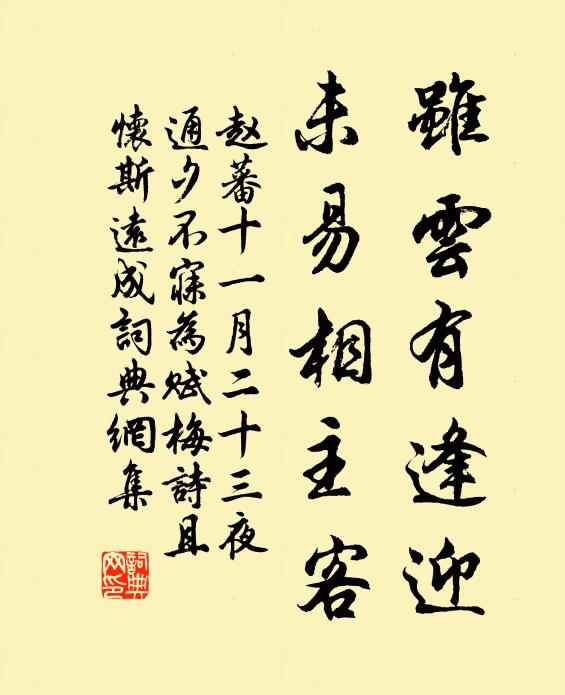 雖雲有逢迎
未易相主客
赵蕃十一月二十三夜
通夕不寐為赋梅詩且
懷斯遠成詞典網集
詞典網印